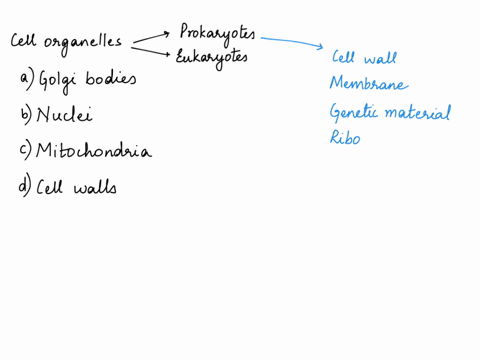 Cell organelles
Prokaryotes
Eukaryotes
a) Golgi bodies
b) Nuclei
c) Mitochondria
d) Cell walls
Cell wall
Membrane
Genetic material
Ribo